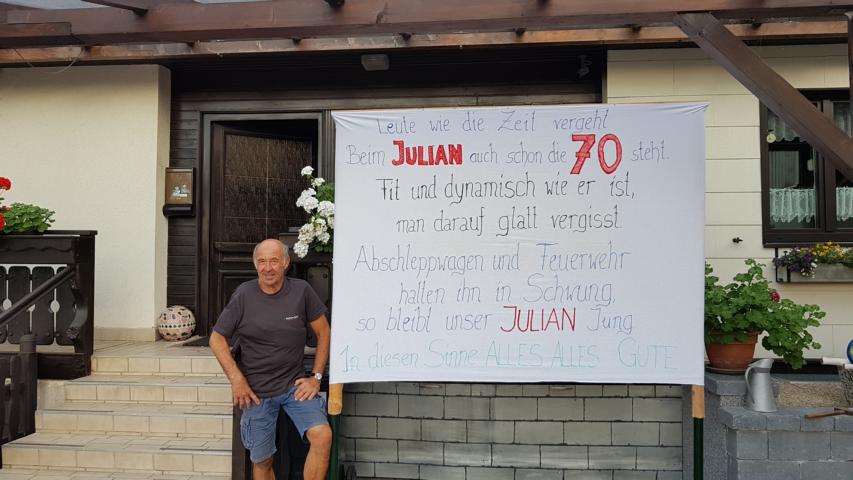 Leute wie die Zeit vergeht
Beim JULIAN auch schon die 70 steht.
Fit und dynamisch wie er ist,
man darauf glatt vergisst.
Abschleppwagen und Feuerwehr
halten ihn in Schwung,
so bleibt unser JULIAN Jung
In diesen Sinne ALLES ALLES GUTE